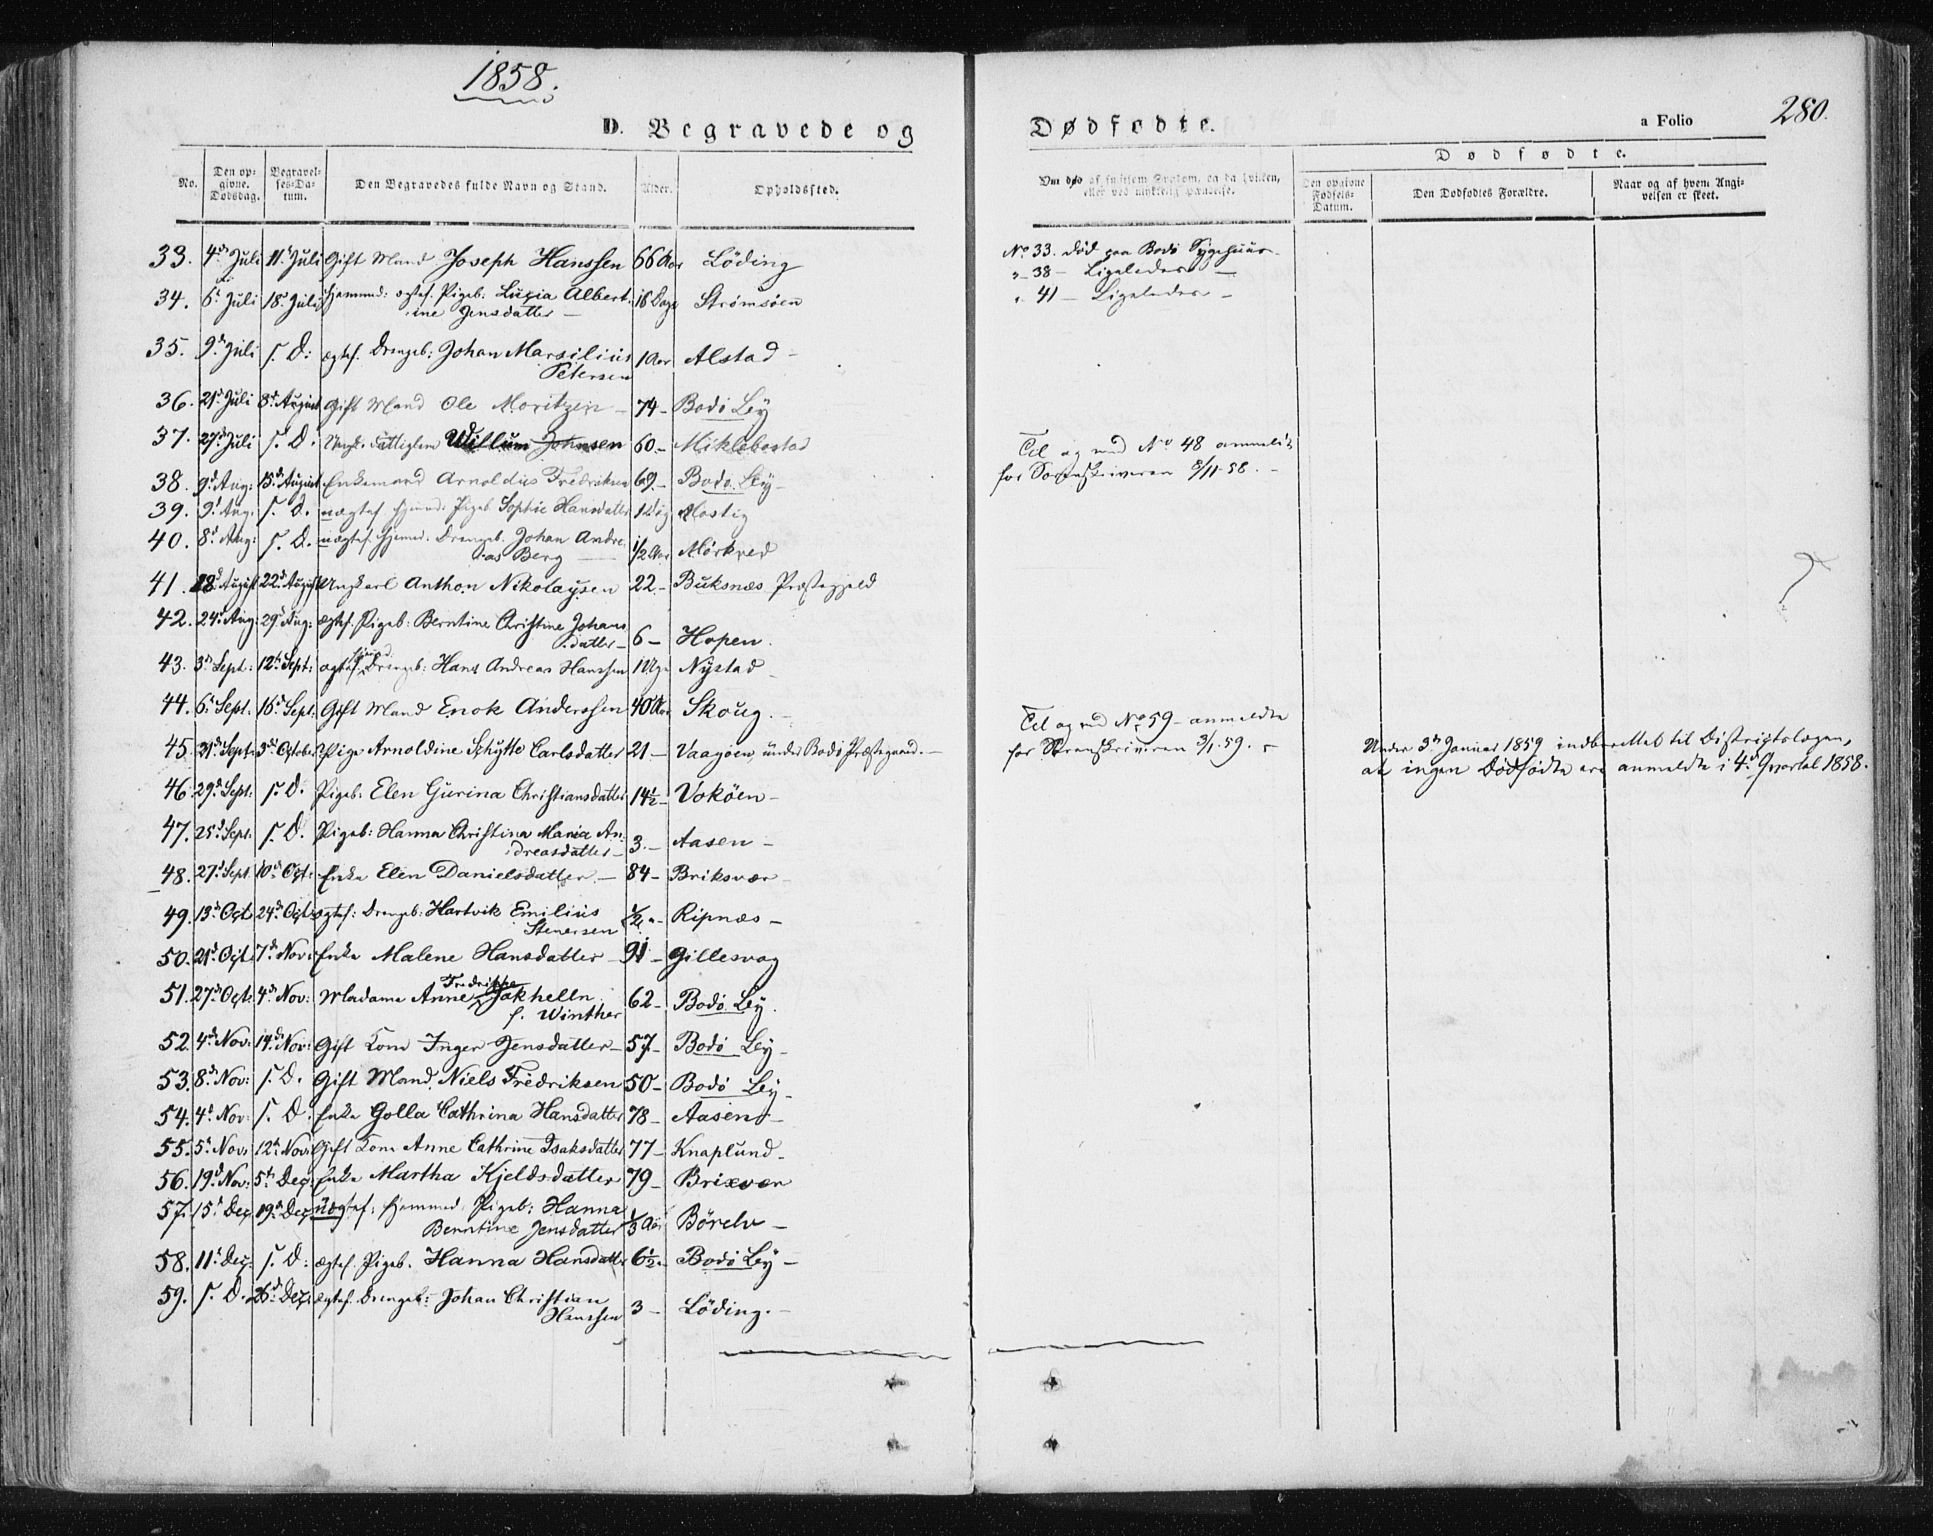 1858.
D. Begravede og
Dødfødte.
a Folio
280.
No.
Den op-
givne.
Dødsdag.
Begravel-
ses-Da-
tum.
Den Begravedes fulde Navn og Stand.
Alder.
Opholdssted.
Dødfødte.
Den opgivne
Fødsels-
Datum.
Den Dødfødtes Forældre.
Naar og af hvem Angi-
velsen er skeet.
33. 4d Juli 11t Juli Gift Mand Joseph Hanssen 66 Aar Löding
34. 6t Juli 18d Juli hjemmed: ægtef. Pigeb. Lucia Albert-
ine Jensdatter — 16 Dage Strømsøen
35. 9d Juli s. D: ægtef. Drengeb: Johan Marsilius
Petersen 1 Aar Alstad –
36. 21d Juli 8d August Gift Mand Ole Moritzen – 74 – Bodö Ley
37. 27d Juli s. D. Fattiglem Willum Johnsen 60. – Miklebostad
38. 9d Aug: 15d August Enkemand Arnoldus Fredriksen 69. – Bodö Ley –
39. 9d Aug. s. D. uægtef. hjemd: Pigeb Sophie Hansdatter
40. 8d Aug: s. D. uægtef. hjemed. Drengeb. Johan Andre-
as Berg — 1/2 Aar Mörkved
41. 18d August 22d August Ungkarl Anthon Nikolaysen 22 – Buksnæs Præstegjeld
42. 24d Aug: 29d Aug: ægtef. Pigeb: Berntine Christine Johans-
datter – 6 – Hopen.
43. 3d Sept: 12t Sept: ægtef. hjemd: Drengeb: Hans Andreas Hanssen 1 Uge Nystad –
44. 6t Sept. 16d Sept: Gift Mand Enok Anderssen 40 Aar Skoug. –
45. 21d Sept: 3d Octobr. Pige Arnoldine Schytte Carlsdatter 21 – Vaagöen, under Bodö Præstegaard. –
46. 29d Sept: s. D. Pigeb: Elen Gurina Christiansdatter 14½ – Vokøen –
47. 25d Sept. s. D. Pigeb: Hanna Christina Maria An-
dreasdatter – 3. – Aasen –
48. 27d Sept. 10d Oct: Enke Elen Danielsdatter. – 84 – Briksvær –
49. 13d Oct: 24d Oct: ægtef: Drengeb: Hartvik Emilius
Stenersen Ripnæs –
50. 21d Oct. 7d Nov: Enke Malene Hansdatter – 91 – Gillesvag
51. 27d Oct: 4d Nov: Madame Anne Fredrikke Jakhelln
f. Winther 62 – Bodö Ley.
52. 4d Nov: 14d Nov: Gift Kone Inger Jensdatter – 57 – Bodö Ley –
53. 8d Nov: s. D. Gift Mand Niels Fredriksen 50 – Bodö Ley –
54. 4d Nov: s. D. Enke Golla Cathrina Hansdatter 78 – Aasen –
55. 5t Nov: 12t Nov: Gift Kone Anne Cathrine Isaksdatter 77 – Knaplund –
56. 19d Nov: 5t Dec: Enke Martha Kjeldsdatter 79 – Brixvær
57. 15d Dec 19d Dec uægtef: hjemmed: Pigeb: Hanna
Berntine Jensdatter 1/3 Aar Börelv –
58. 11t Dec: s. D: ægtef. Pigeb. Hanna Hansdatter 6½ – Bodö Ley –
59. s. D. 26d Dec: ægtef. Drengeb: Johan Christian
Hanssen 3 – Löding. –
No 33. død paa Bodö Sygehuus –
" – 38 – Ligeledes –
" 41 – Ligeledes –
Til og med No 48 anmeldt
for Sorenskriveren 8/11 58. –
Til og med No 59 – anmeldte
for Sorenskriveren 3/1. 59. –
Under 3d Januar 1859 indberettet til Distriktslægen,
at ingen Dødfødte ere anmeldte i 4d Qvartal 1858.